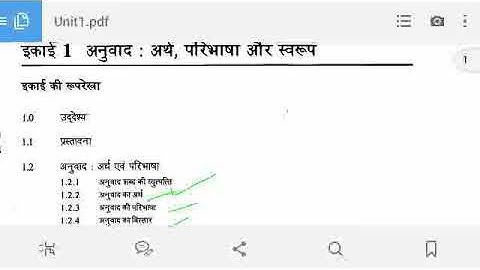 Unit1.pdf
इकाई 1 अनुवाद : अर्थ, परिभाषा और स्वरूप
1
इकाई की रूपरेखा
1.0 उद्देश्य
1.1 प्रस्तावना
1.2 अनुवाद : अर्थ एवं परिभाषा
1.2.1 अनुवाद शब्द की व्युत्पत्ति
1.2.2 अनुवाद का अर्थ
1.2.3 अनुवाद की परिभाषा
1.2.4 अनुवाद का विस्तार